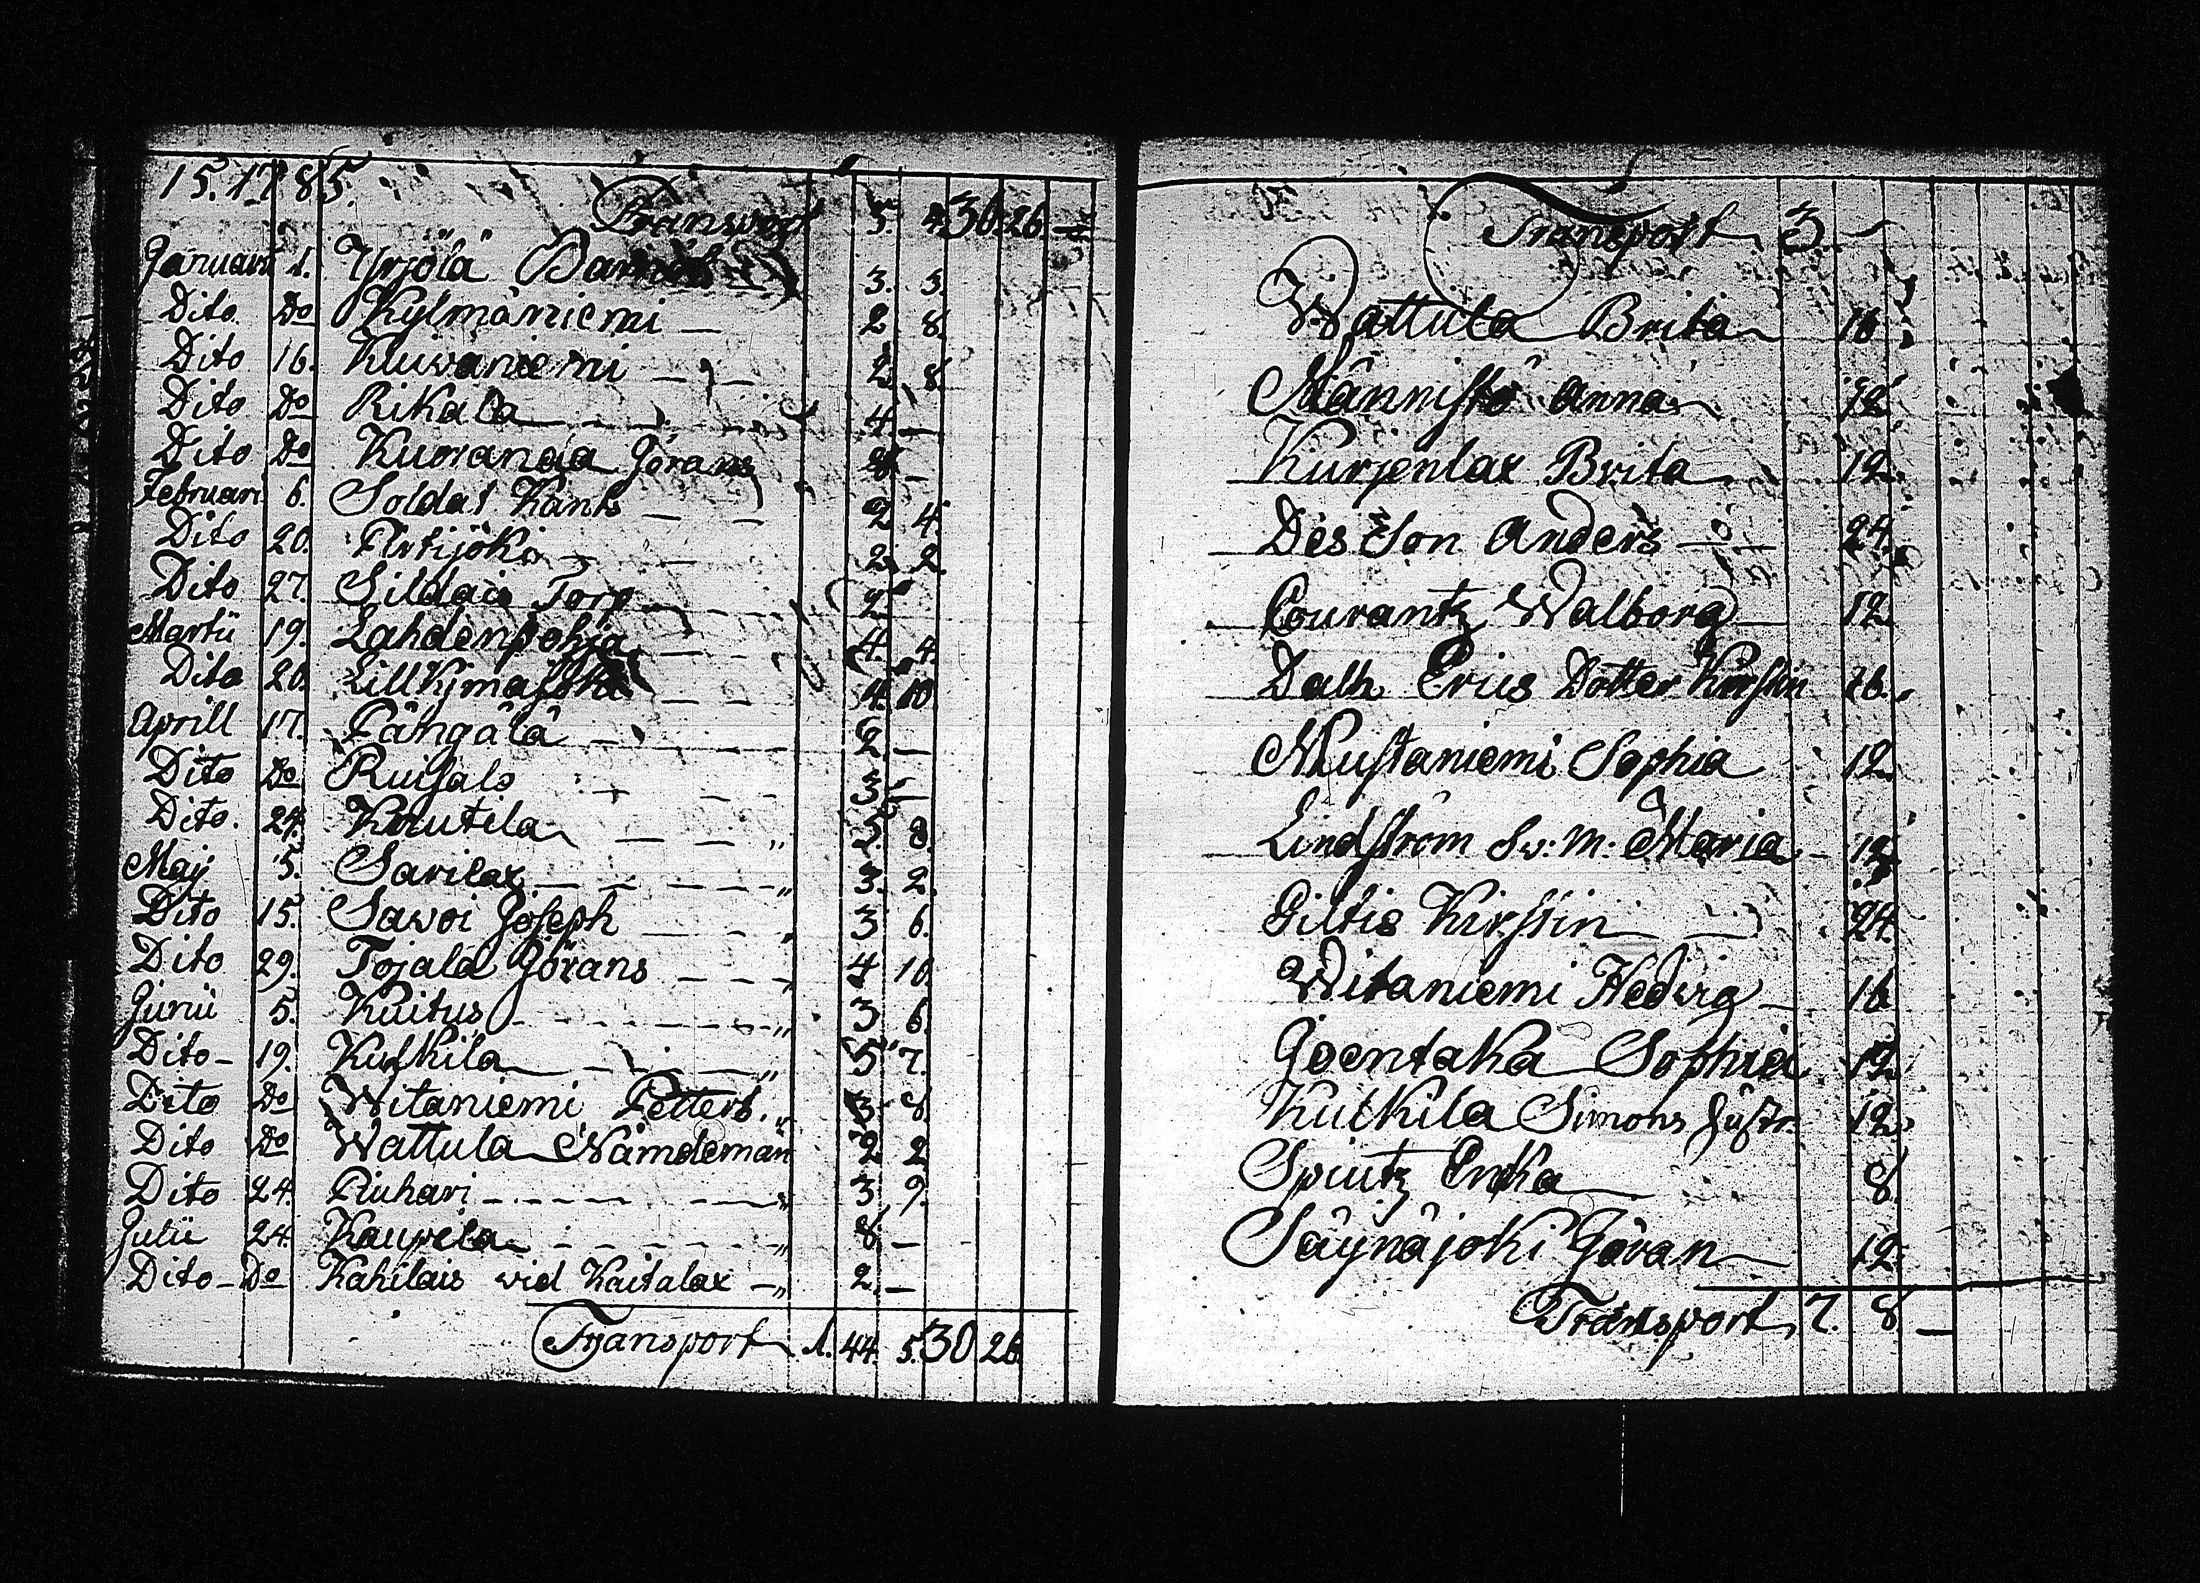 15. 1785.
Transport 5. 4. 30. 26. —
Januarii 1. Yrjölä 3. 3.
Dito Do Kylmäniemi — 2. 8.
Dito 16. Kuivaniemi — 2. 8.
Dito Do Rikala 4. —
Dito Do Kuoranda Görans 8. —
Februari 6. Soldat Kank 2. 4.
Dito 20. Pirtijöki 2. 2.
Dito 27. Sildais Torp 2.
Martii 19. Lahdenpohja 4. 4.
Dito 20. 4. 10.
Aprill 17. Pähgälä — 2. —
Dito Do Ruisalo 3. —
Dito. 24. Knutila 5. 8.
Maij 5. Sarilax 3. 2.
Dito 15. Savoi Joseph 3 6.
Dito 29. Tojala Görans 4 10.
Junii 5. Kuitus 3 6.
Dito — 19. Kuskila 5 7.
Dito Do Witaniemi Petters. 3. 8.
Dito Do Wattula Nämdeman 2 2
Dito 24. Piuhari 3 9.
Julii 24. Kaupela 8. —
Dito — Do Kahilais vid Kaitalax — 2. —
Transport 1. 44. 5. 30 26.
Transport 3. —
Wattula Brita 16.
Männistö Anna 12
Kurjenlax Brita 12.
Des Son Anders — 24.
Courantz Walborg — 12
Dalh Erics Dotter Kirstin 16.
Mustaniemi Sophia 12.
Lindström Sv: M: Maria 12.
Giltis Kirstin 24.
Witaniemi Hedvig 16
Joentaka Sophia 12
Kuckila Simons hustr. 12.
Spiutz Erika 8
Säynäjoki Göran 12.
Transport, 7. 8 —